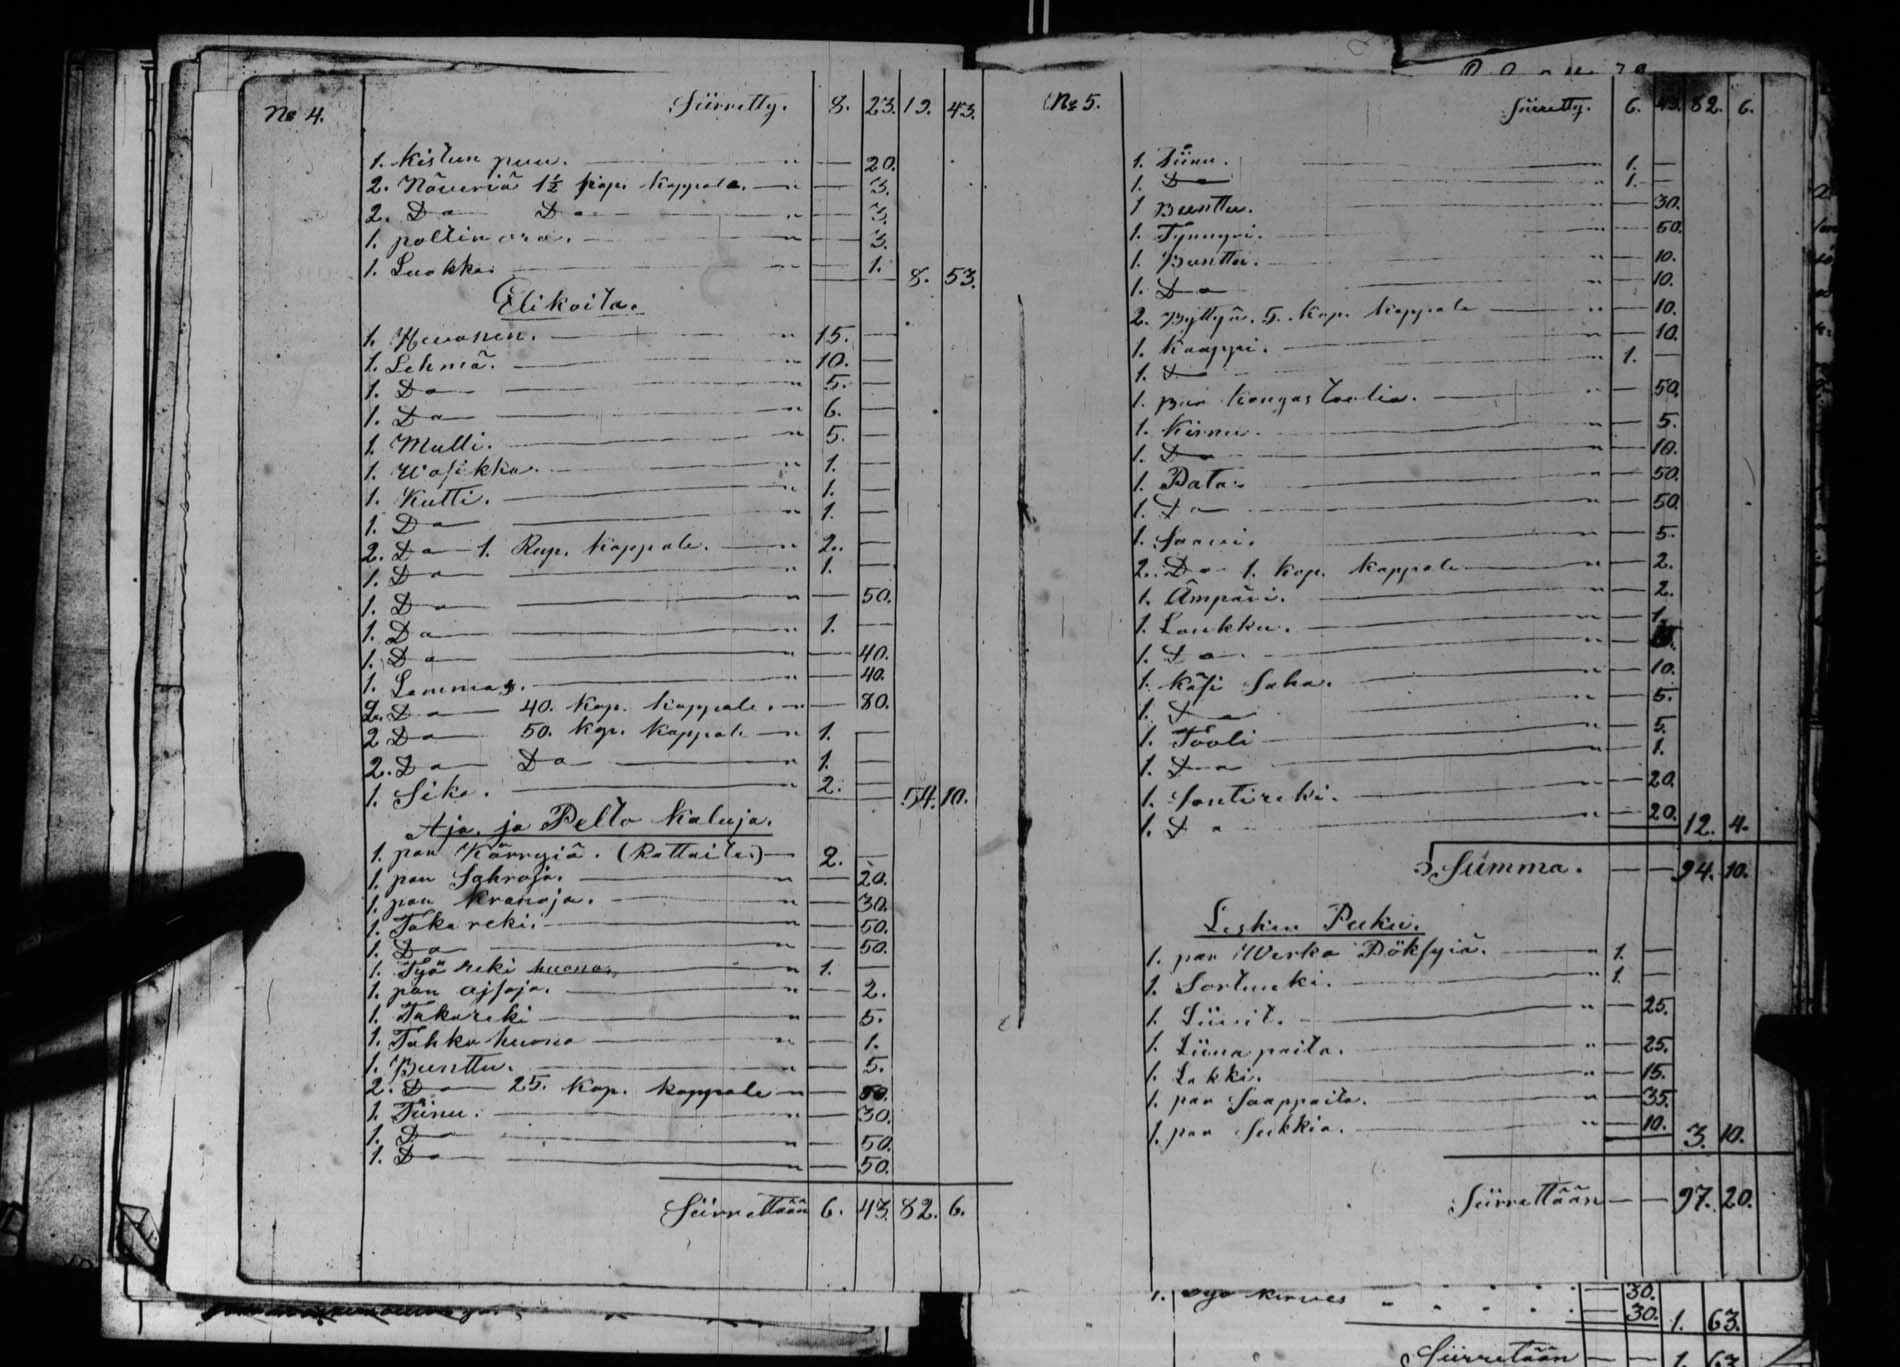 No 4. Siirretty. 8. 23. 19. 43.
1. Kistun puu. — " — 20.
2. Näveriä 1½ kop. kappale. — " — 3.
2. Do Do — " — 3.
1. poltin ora. — " — 3.
1. Luokka. — " — 1. 8. 53.
Elikoita.
1. Hevonen. — " 15. —
1. Lehmä. — " 10. —
1. Do — " 5. —
1. Do — " 6. —
1. Mulli. — " 5. —
1. Wasikka. — " 1. —
1. Kutti. — " 1. —
1. Do — " 1. —
2. Do 1. Rup. kappale. — " 2. —
1. Do — " 1. —
1. Do — " — 50.
1. Do — " 1. —
1. Do — " — 40.
1. Lammas. — " — 40.
2. Do 40. Kop. kappale. — " — 80.
2 Do 50. Kop. kappale — " 1. —
2. Do Do — " 1. —
1. Sika. — " 2. — 54. 10.
Ajo. ja Pelto Kaluja.
1. par Kärryiä. (Rattaita) — 2. —
1. par Sahroja. — " — 20.
1. par Kranoja. — " — 30.
1. Taka reki. — " — 50.
1. Do — " — 50.
1. Työ reki huono. — " 1. —
1. par ajsoja. — " — 2.
1. Takareki — " — 5.
1. Tahko huono — " — 1.
1. Bunttu. — " — 5.
2. Do 25. Kop. kappale — " — 50.
1. Tiinu. — " — 30.
1. Do — " — 50.
1. Do — " — 50.
Siirrettään 6. 43. 82. 6.
No 5. Siirretty. 6. 43. 82. 6.
1. Tiinu. — " 1. —
1. Do — " 1. —
1 Bunttu. — " — 30.
1. Tynnyri. — " — 50.
1. Bunttu. — " — 10.
1. Do — " — 10.
2. Byttyä. 5. Kop. kappale — " — 10.
1. Kaappi. — " — 10.
1. Do — " 1. —
1. par Kangas toolia. — " — 50.
1. Kirnu. — " — 5.
1. Do — " — 10.
1. Pata. — " — 50.
1. Do — " — 50.
1. Saavi. — " — 5.
2. Do 1. Kop. kappale — " — 2.
1. Ämpäri. — " — 2.
1. Loukku. — " — 1.
1. Do — " —
1. Käsi Saha. — " — 10.
1. Do — " — 5.
1. Tooli — " — 5.
1. Do — " — 1.
1. Sontireki. — " — 20.
1. Do — " — 20. 12. 4.
Summa. — — 94. 10.
Lesken Puku.
1. par Werka Pöksyiä. — " 1. —
1. Sortuuki. — " 1. —
1. Liivit. — " — 25.
1. Liina paita. — " — 25.
1. Lakki. — " — 15.
1. par Saappaita. — " — 35.
1. par Sukkia. — " — 10. 3. 10.
Siirrettään — — 97. 20.
— 30.
1. kirves — 30. 1. 63.
Siirretään — — 1. 63.